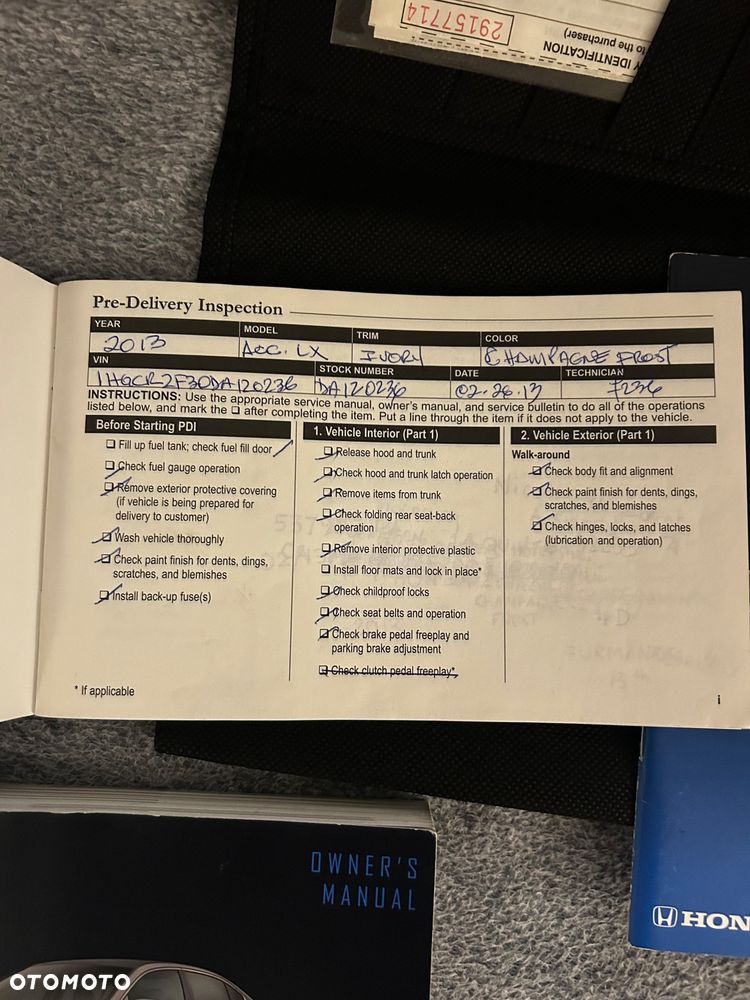 29157714
Y IDENTIFICATION
to the purchaser)
Pre-Delivery Inspection
YEAR MODEL TRIM COLOR
2013 ACC. LX IVORY CHAMPAGNE FROST
VIN STOCK NUMBER DATE TECHNICIAN
1HGCR2F30DA120236 DA120236 02-28-13 7236
INSTRUCTIONS: Use the appropriate service manual, owner's manual, and service bulletin to do all of the operations
listed below, and mark the ❑ after completing the item. Put a line through the item if it does not apply to the vehicle.
Before Starting PDI
❑ Fill up fuel tank; check fuel fill door
❑ Check fuel gauge operation
❑ Remove exterior protective covering
(if vehicle is being prepared for
delivery to customer)
❑ Wash vehicle thoroughly
❑ Check paint finish for dents, dings,
scratches, and blemishes
❑ Install back-up fuse(s)
* If applicable
1. Vehicle Interior (Part 1)
❑ Release hood and trunk
❑ Check hood and trunk latch operation
❑ Remove items from trunk
❑ Check folding rear seat-back
operation
❑ Remove interior protective plastic
❑ Install floor mats and lock in place*
❑ Check childproof locks
❑ Check seat belts and operation
❑ Check brake pedal freeplay and
parking brake adjustment
❑ Check clutch pedal freeplay*
2. Vehicle Exterior (Part 1)
Walk-around
❑ Check body fit and alignment
❑ Check paint finish for dents, dings,
scratches, and blemishes
❑ Check hinges, locks, and latches
(lubrication and operation)
i
OWNER'S
MANUAL
HON
OTOMOTO